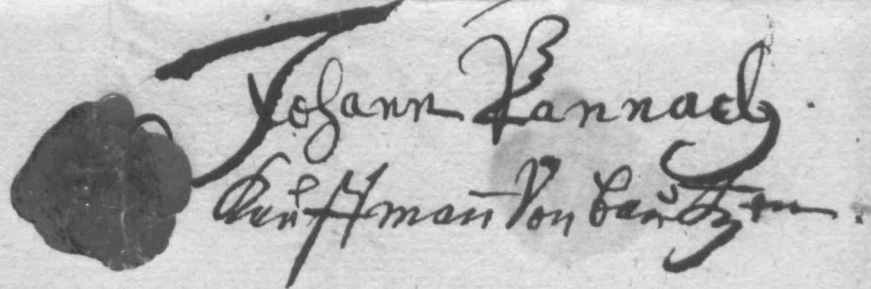 Johann Rannach.
Kauffmañ Von bautzen.